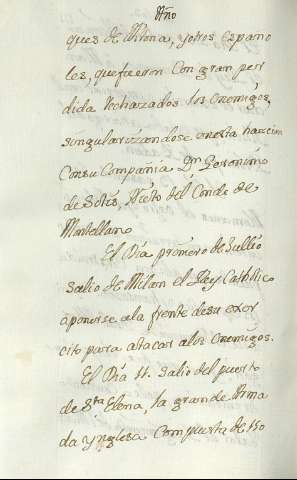 Año
ques de Mona, y otros Españo
les, que fueron con gran per
dida rechazados los enemigos,
singularizandose en esta haccion
Con su Compañia Dn Geronimo
de Solis, Nieto del Conde de
Montellano
El Dia primero de Jullio
Salio de Milan el Rey Catholico
aponerse ala frente de su exer
cito para atacar alos Enemigos.
El Dia 11. Salio del puerto
de Sta Elena, la grande Arma
da Ynglesa Compuesta de 150